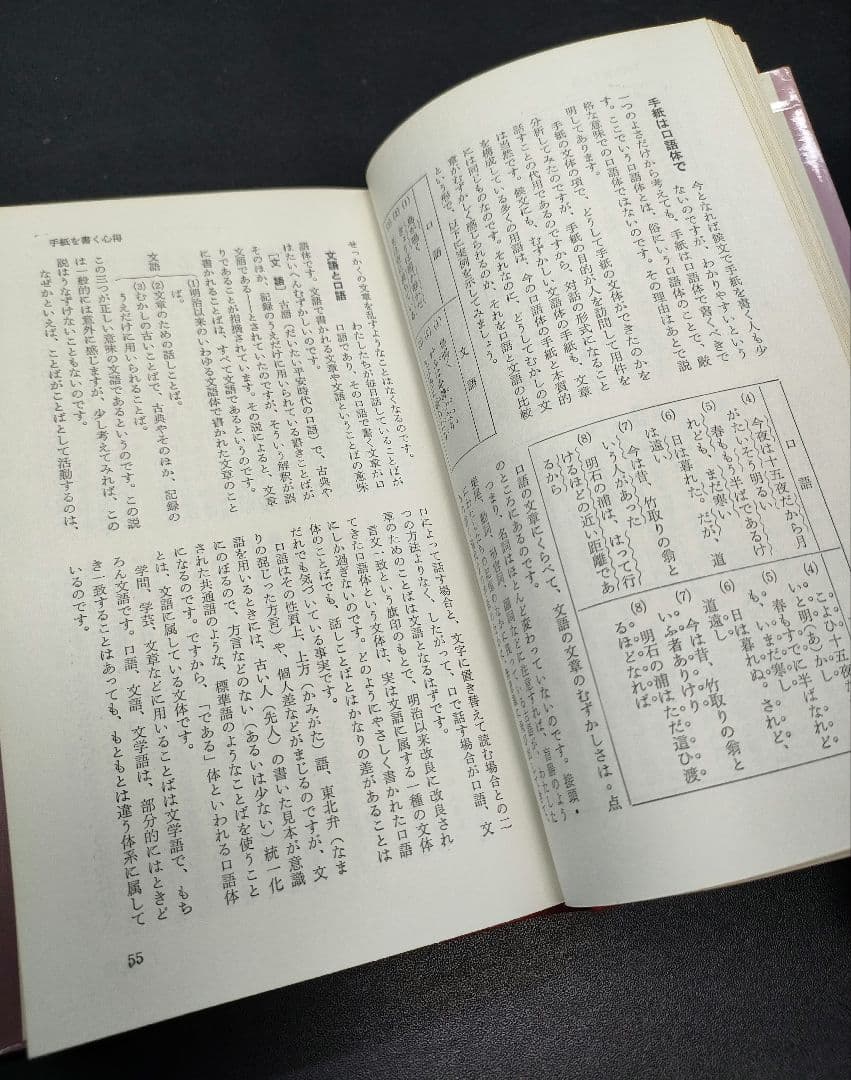 手紙は口語体で
今となれば候文で手紙を書く人も少
ないのですが、わかりやすいという
一つのよさだけから考えても、手紙は口語体で書くべきで
す。ここでいう口語体とは、俗にいう口語体のことで、厳
格な意味での口語体ではないのです。その理由はあとで説
明してあります。
手紙の文体の項で、どうして手紙の文体ができたのかを
分析してみたのですが、手紙の目的が人を訪問して用件を
話すことの代用であるのですから、対話の形式になること
は当然です。候文にも、むずかしい文語体の手紙も、文章
を構成している多くの用語は、今の口語体の手紙と本質的
には同じものなのです。それなのに、どうしてむかしの文
章がむずかしく感じられるのか、それを口語と文語の比較
という形で、以下に実例を示してみましょう。
口語
(1)
(2)
(3)
文語
(1)
(2)
口語
(4) 今夜は十五夜だから月
がたいそう明るい
(5) 春ももう半ばであるけ
れども、まだ寒い
(6) 日は暮れた。だが、道
は遠い
(7) 今は昔、竹取りの翁と
いう人があった
(8) 明石の浦は、はって行
けるほどの近い距離であ
るから
(4) こよひ十五夜
と明(あ)かし
(5) 春もすでに半ばなれど
も、いまだ寒し
(6) 日は暮れぬ。されど、
道遠し
(7) 今は昔、竹取りの翁と
いふ者ありけり
(8) 明石の浦はただ這ひ渡
るほどなれば
口語の文章にくらべて、文語の文章のむずかしさは。点
のところにあるのです。
つまり、名詞はほとんど変わっていないのです。接頭・
手紙を書く心得
せっかくの文章を乱すようなことはなくなるのです。
文語と口語
わたしたちが毎日話していることばが
口語であり、その口語で書く文章が口
語体です。文語で書かれる文章や文語ということばの意味
はたいへんむずかしいのです。
「文語」古語（だいたい平安時代の口語）で、古典や
そのほか、記録のうえだけに用いられている書きことばが
文語である――とされていたのですが、そういう解釈が誤
りであることが指摘されています。その説によると、文章
に書かれることばは、すべて文語であるというのです。
文語
(1)明治以来のいわゆる文語体で書かれた文章のこと
ば。
(2)文章のための話しことば。
(3)むかしの古いことばで、古典やそのほか、記録の
うえだけに用いられることば。
この三つが正しい意味の文語であるというのです。この説
は一般的には意外に感じますが、少し考えてみれば、この
説はうなずけないこともないのです。
なぜかといえば、ことばがことばとして活動するのは、
口によって話す場合と、文字に置き替えて読む場合との二
つの方法よりなく、したがって、口で話す場合が口語、文
章のためのことばは文語となるはずです。
言文一致という旗印のもとで、明治以来改良に改良され
てきた口語体という文体は、実は文語に属する一種の文体
にしか過ぎないのです。どのようにやさしく書かれた口語
体のことばでも、話しことばとはかなりの差があることは
だれでも気づいている事実です。
口語はその性質上、上方（かみがた）語、東北弁（なま
りの混じった方言）や、個人差などがまじるのですが、文
語を用いるときには、古い人（先人）の書いた見本が意識
にのぼるので、方言などのない（あるいは少ない）統一化
された共通語のような、標準語のようなことばを使うこと
になるのです。ですから、「である」体といわれる口語体
とは、文語に属している文体です。
学問、学芸、文章などに用いることばは文学語で、もち
ろん文語です。口語、文語、文学語は、部分的にはときど
き一致することはあっても、もともとは違う体系に属して
いるのです。
55